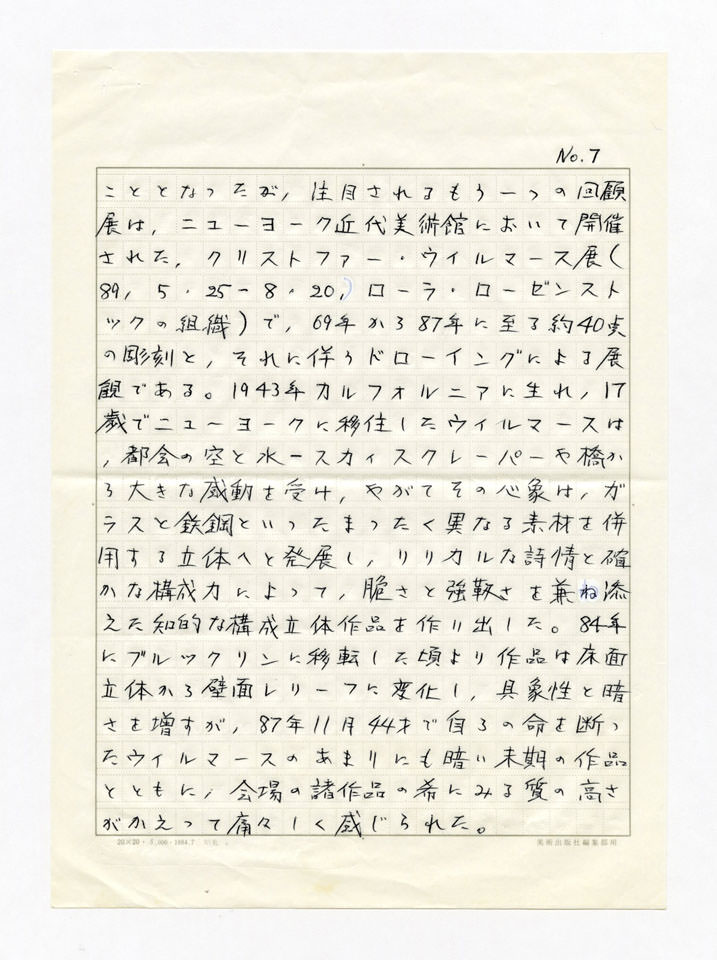 No.7
こととなったが，注目されるもう一つの回顧
展は，ニューヨーク近代美術館において開催
された，クリストファー・ウィルマース展（
89，5・25－8・20，）ローラ・ローゼンスト
ックの組織）で，69年から87年に至る約40点
の彫刻と，それに伴うドローイングによる展
観である。1943年カルフォルニアに生れ，17
歳でニューヨークに移住したウィルマースは
，都会の空と水－スカィスクレーパーや橋か
ら大きな感動を受け，やがてその心象は，ガ
ラスと鉄鋼といったまったく異なる素材を併
用する立体へと発展し，リリカルな詩情と確
かな構成力によって，脆さと強靱さを兼ね添
えた知的な構成立体作品を作り出した。84年
にブルックリンに移転した頃より作品は床面
立体から壁面レリーフに変化し，具象性と暗
さを増すが，87年11月44才で自らの命を断っ
たウィルマースのあまりにも暗い末期の作品
とともに，会場の諸作品の希にみる質の高さ
がかえって痛々しく感じられた。
20×20・5,000・1984.7 美術出版社編集部用